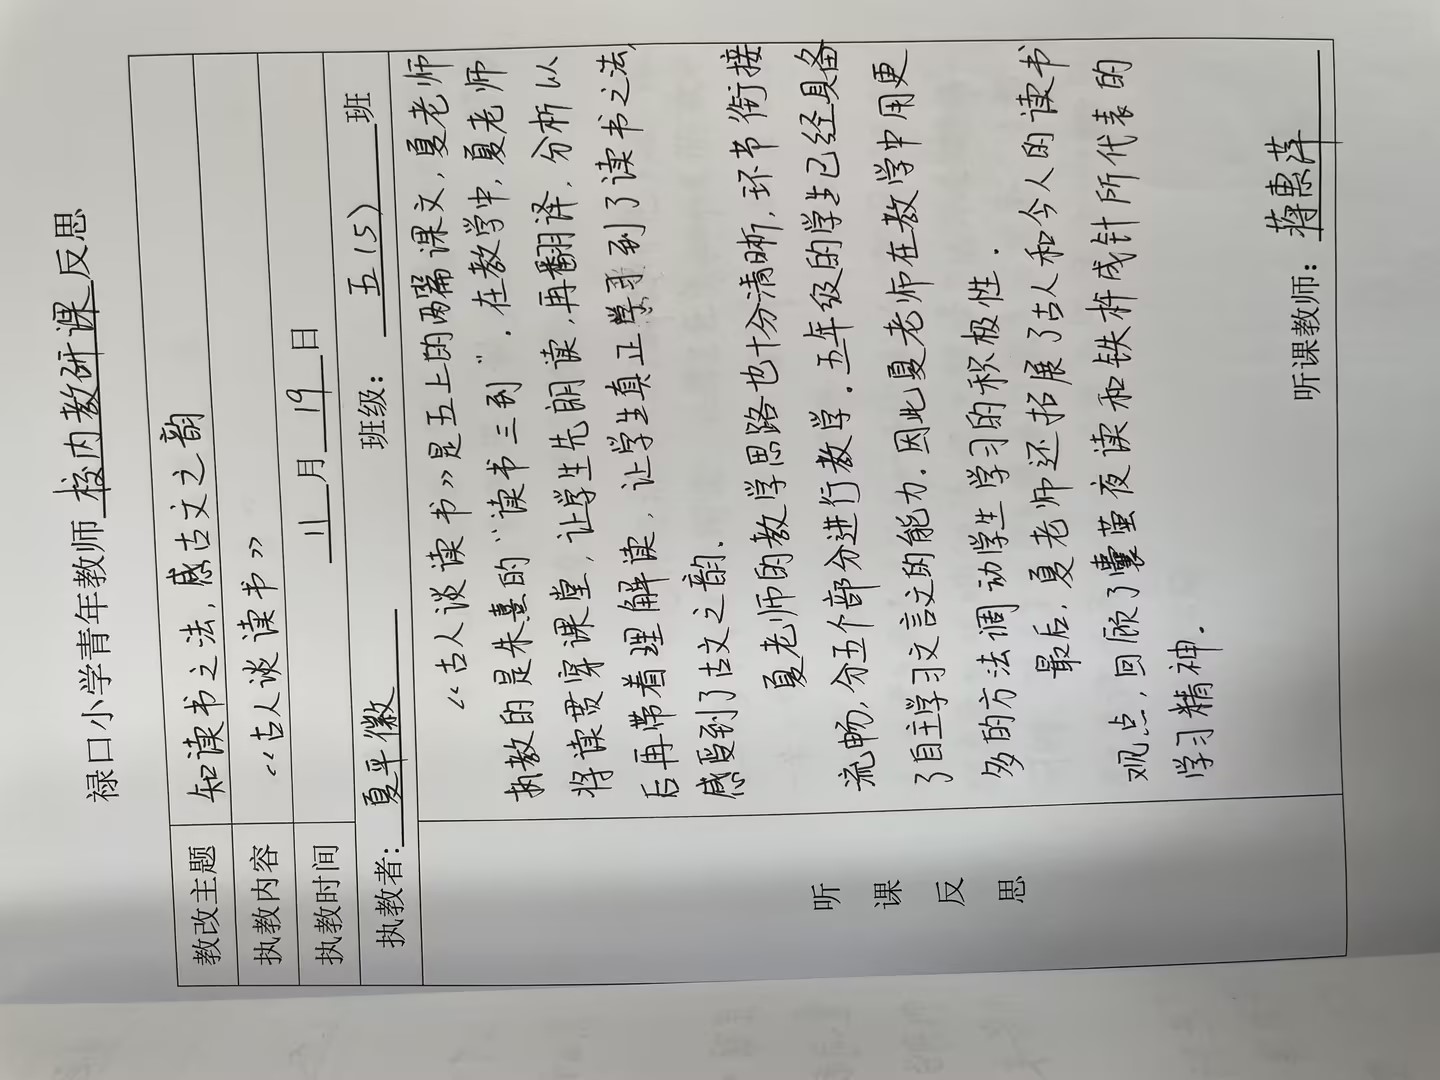 禄口小学青年教师校内教研课反思
教改主题 知读书之法，感古文之韵
执教内容 《古人谈读书》
执教时间 11月19日
执教者:夏平徽 班级：五(5)班
《古人谈读书》是五上的两篇课文，夏老师
执教的是朱熹的“读书三到”．在教学中，夏老师
将读贯穿课堂，让学生先朗读，再翻译，分析以
后再带着理解读，让学生真正学习到了读书之法，
感受到了古文之韵．
夏老师的教学思路也十分清晰，环节衔接
流畅，分五个部分进行教学．五年级的学生已经具备
了自主学习文言文的能力．因此夏老师在教学中用更
多的方法调动学生学习的积极性．
最后，夏老师还拓展了古人和今人的读书
观点，回顾了囊萤夜读和铁杵成针所代表的
学习精神．
听
课
反
思
听课教师：蒋惠萍